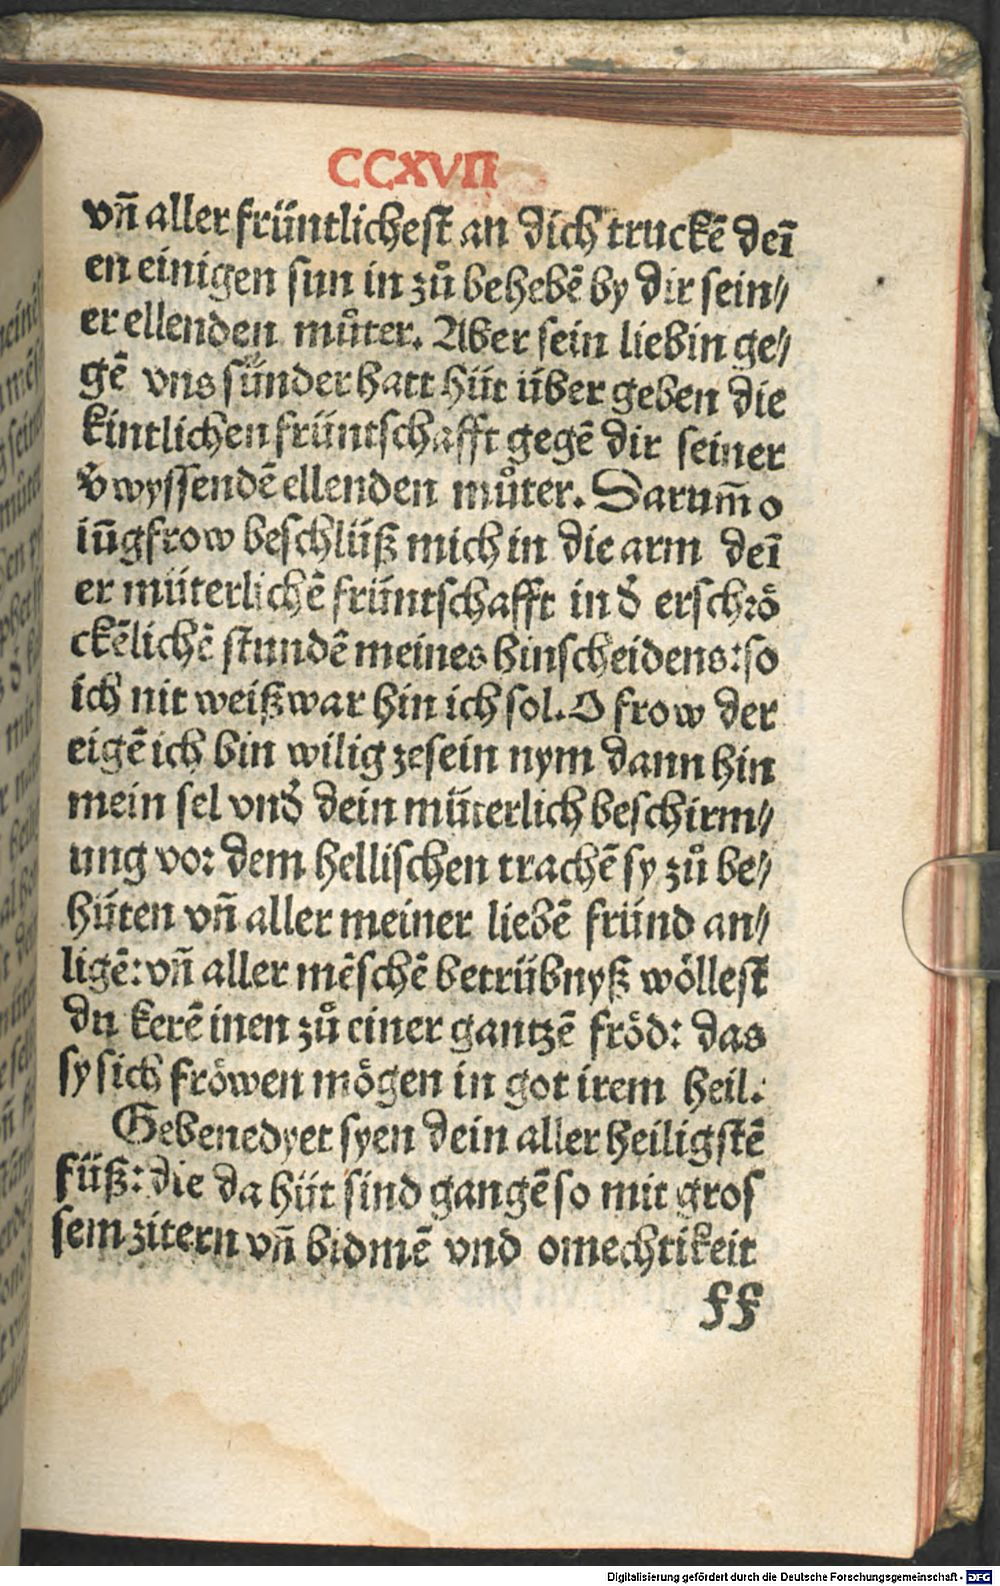 CCXVII
vn̄ aller früntlichest an dich truckē deī
en einigen sun in zuͦ behebē by dir sein⸗
er ellenden muͦter. Aber sein liebin ge⸗
gē vns sünder hatt hüt über geben die
kintlichen früntschafft gegē dir seiner
v̄wyssendē ellenden muͦter. Darum̄ o
iūgfrow beschlüß mich in die arm deī
er müterlichē früntschafft in d̄ erschrö
ckēlichē stundē meines hinscheidens: so
ich nit weiß war hin ich sol. O frow der
eigē ich bin wilig zesein nym dann hin
mein sel vnd̄ dein müterlich beschirm⸗
ung vor dem hellischen trachē sy zuͦ be⸗
hüten vn̄ aller meiner liebē fründ an⸗
ligē: vn̄ aller mēschē betrübnyß wöllest
du kerē inen zuͦ einer gantzē fröd: das
sy sich fröwen mögen in got irem heil.
Gebenedyet syen dein aller heiligstē
füß: die da hüt sind gangē so mit gros
sem zitern vn̄ bidmē vnd omechtikeit
ff
Digitalisierung gefördert durch die Deutsche Forschungsgemeinschaft - DFG